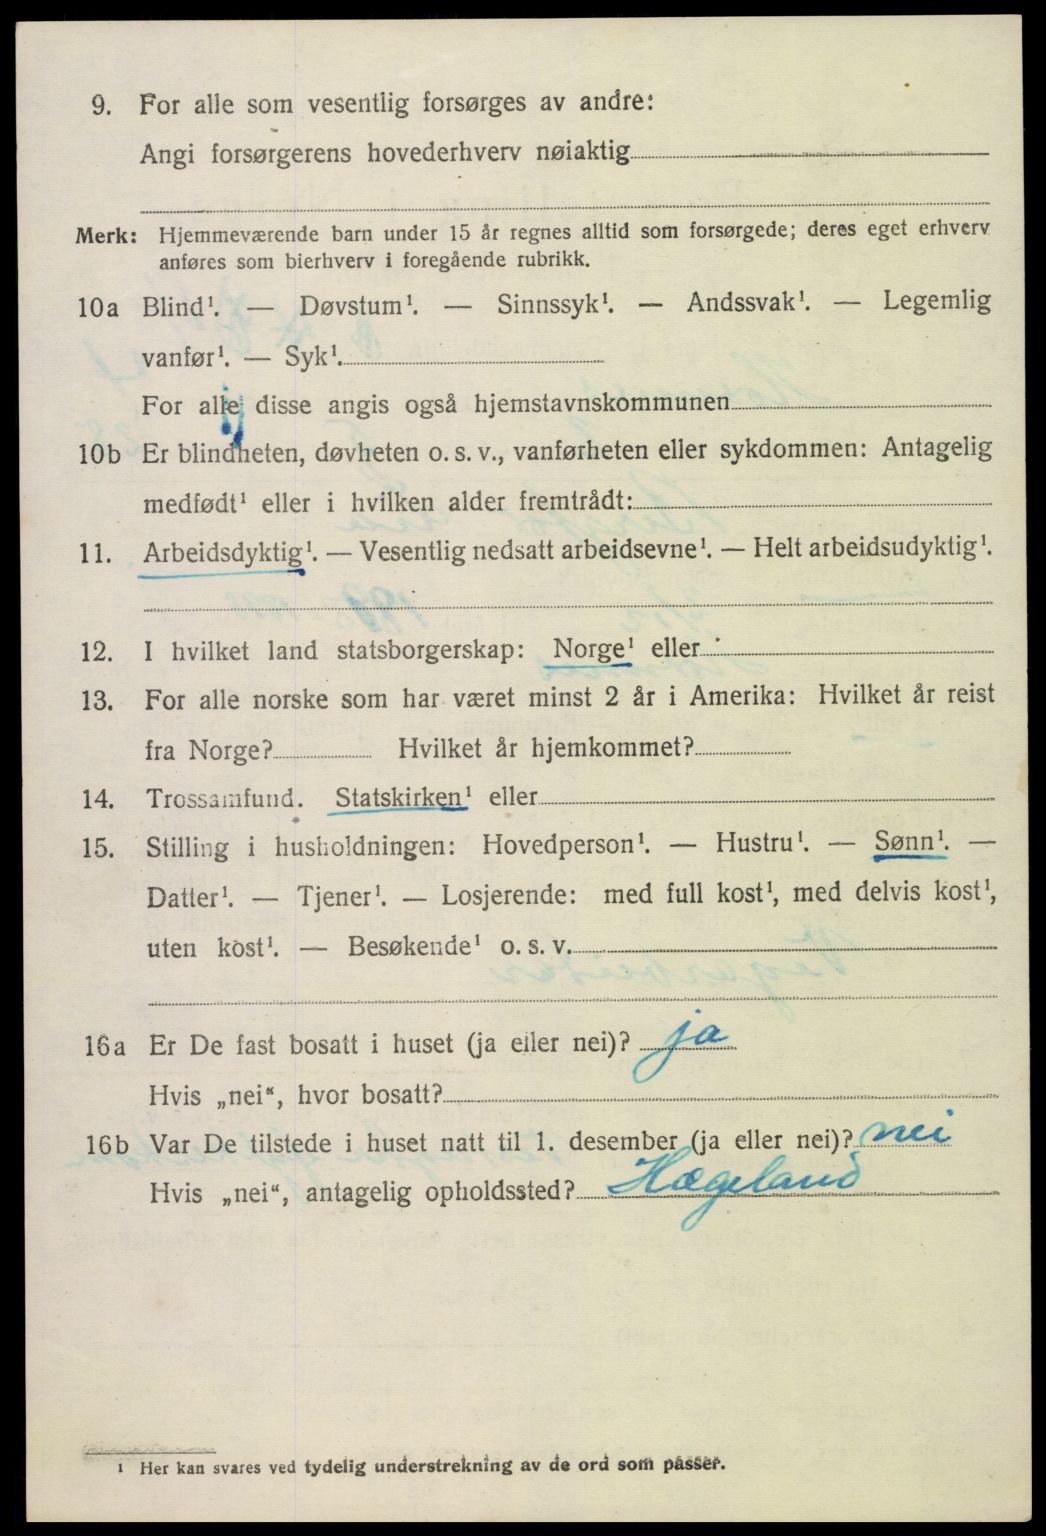 9. For alle som vesentlig forsørges av andre:
Angi forsørgerens hovederhverv nøiaktig
Merk: Hjemmeværende barn under 15 år regnes alltid som forsørgede; deres eget erhverv
anføres som bierhverv i foregående rubrikk.
10a Blind¹. — Døvstum¹. — Sinnssyk¹. — Andssvak¹. — Legemlig
vanfør¹. — Syk¹.
For alle disse angis også hjemstavnskommunen
10b Er blindheten, døvheten o. s. v., vanførheten eller sykdommen: Antagelig
medfødt¹ eller i hvilken alder fremtrådt:
11. Arbeidsdyktig¹. — Vesentlig nedsatt arbeidsevne¹. — Helt arbeidsudyktig¹.
12. I hvilket land statsborgerskap: Norge¹ eller
13. For alle norske som har været minst 2 år i Amerika: Hvilket år reist
fra Norge? Hvilket år hjemkommet?
14. Trossamfund. Statskirken¹ eller
15. Stilling i husholdningen: Hovedperson¹. — Hustru¹. — Sønn¹. —
Datter¹. — Tjener¹. — Losjerende: med full kost¹, med delvis kost¹,
uten kost¹. — Besøkende¹ o. s. v.
16a Er De fast bosatt i huset (ja eller nei)? ja
Hvis „nei“, hvor bosatt?
16b Var De tilstede i huset natt til 1. desember (ja eller nei)? nei
Hvis „nei“, antagelig opholdssted? Hægeland
¹ Her kan svares ved tydelig understrekning av de ord som passer.